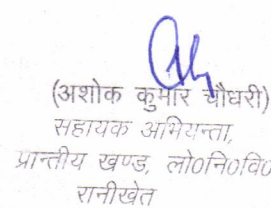 (अशोक कुमार चौधरी)
सहायक अभियन्ता,
प्रान्तीय खण्ड, लो0नि0वि0
रानीखेत